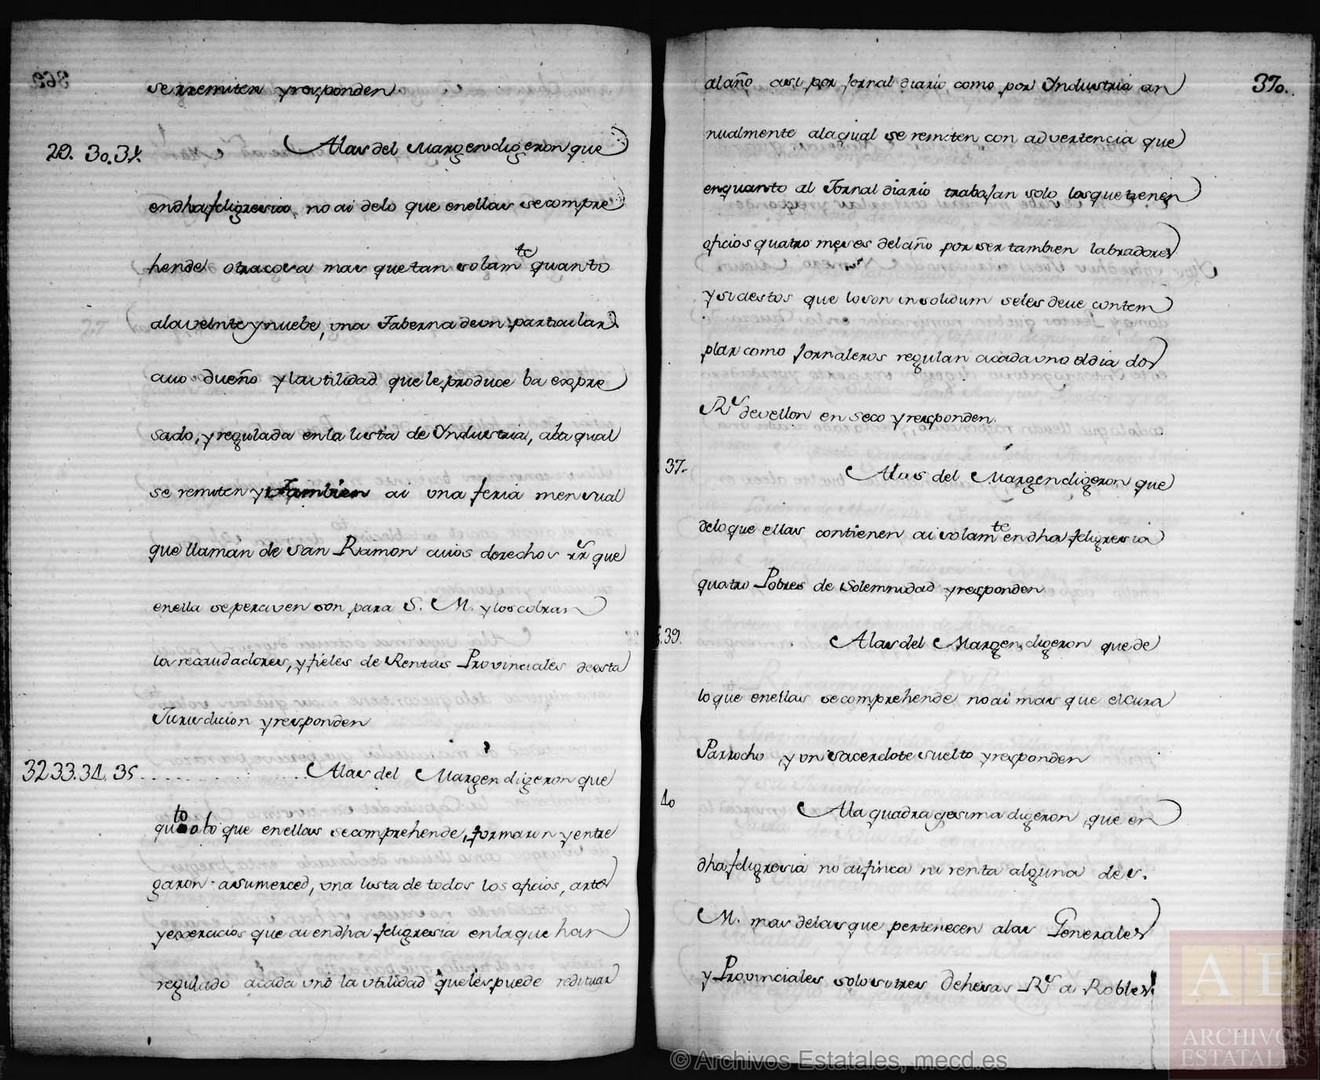 se rremiten y responden.
29. 30. 31. Alas del Margen digeron que
en dha feligresia, no ai delo que enellas se compre
hende otra cosa mas que tan solam.te quanto
ala veinte y nuebe, una Taberna de un particular
cuio dueño y la utilidad que le produce ba expre
sado, y regulada en la lista de Yndustria, ala qual
se remiten y tambien ai una feria mensual
que llaman de San Ramon cuios derechos rr.s que
enella se perciven son para S. M. y los cobran
los recaudadores, y fieles de Rentas Provinciales de esta
Jurisdicion y responden
32 33. 34. 35. Alas del Margen digeron que
qu.to alo que enellas se comprehende, formaron y entre
garon a su merced, una lista de todos los oficios, artes
y exercicios que ai en dha feligresia en la que han
regulado acada uno la utilidad que les puede redituar
370.
al año asi por Jornal diario como por Yndustria an
nualmente ala qual se remiten con advertencia que
en quanto al Jornal diario trabajan solo los que tienen
oficios quatro meses del año por ser tambien labradores
y si a estos que lo son insolidum se les deve contem
plar como Jornaleros regulan acada uno el dia dos
R.s de vellon en seco y responden.
37. Alas del Margen digeron que
delo que ellas contienen ai solam.te en dha feligresia
quatro Pobres de Solemnidad y responden
39. Alas del Margen digeron que de
lo que enellas se comprehende no ai mas que el cura
Parrocho y un sacerdote suelto y responden
40 Ala quadragesima digeron que en
dha feligresia no ai finca ni renta alguna de S.
M. mas delas que pertenecen alas Generales
y Provinciales solo si tres dehesas R.s de Robles
© Archivos Estatales, mecd.es
AE
ARCHIVOS
ESTATALES